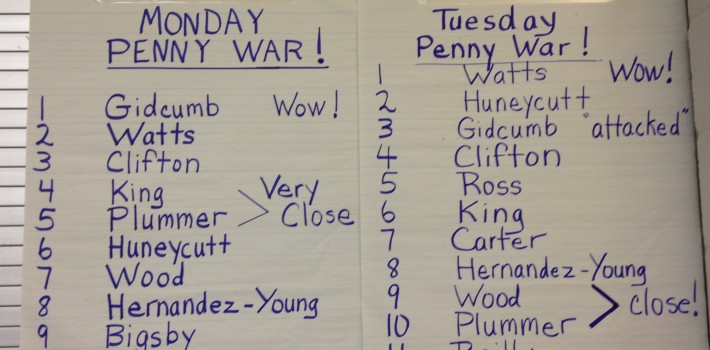 MONDAY
PENNY WAR!
1 Gidcumb Wow!
2 Watts
3 Clifton
4 King
5 Plummer
Very
Close
6 Huneycutt
7 Wood
8 Hernandez-Young
9 Bigsby
Tuesday
Penny War!
1 Watts Wow!
2 Huneycutt
3 Gidcumb "attacked"
4 Clifton
5 Ross
6 King
7 Carter
8 Hernandez-Young
9 Wood
10 Plummer
Close!
11